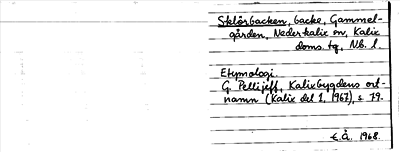 Sklörbacken, backe, Gammel-
gården, Nederkalix sn, Kalix
doms. tg, Nb. l.
Etymologi.
G. Pellijeff, Kalixbygdens ort-
namn (Kalix del 1, 1967), s 79.
E.Å. 1968.